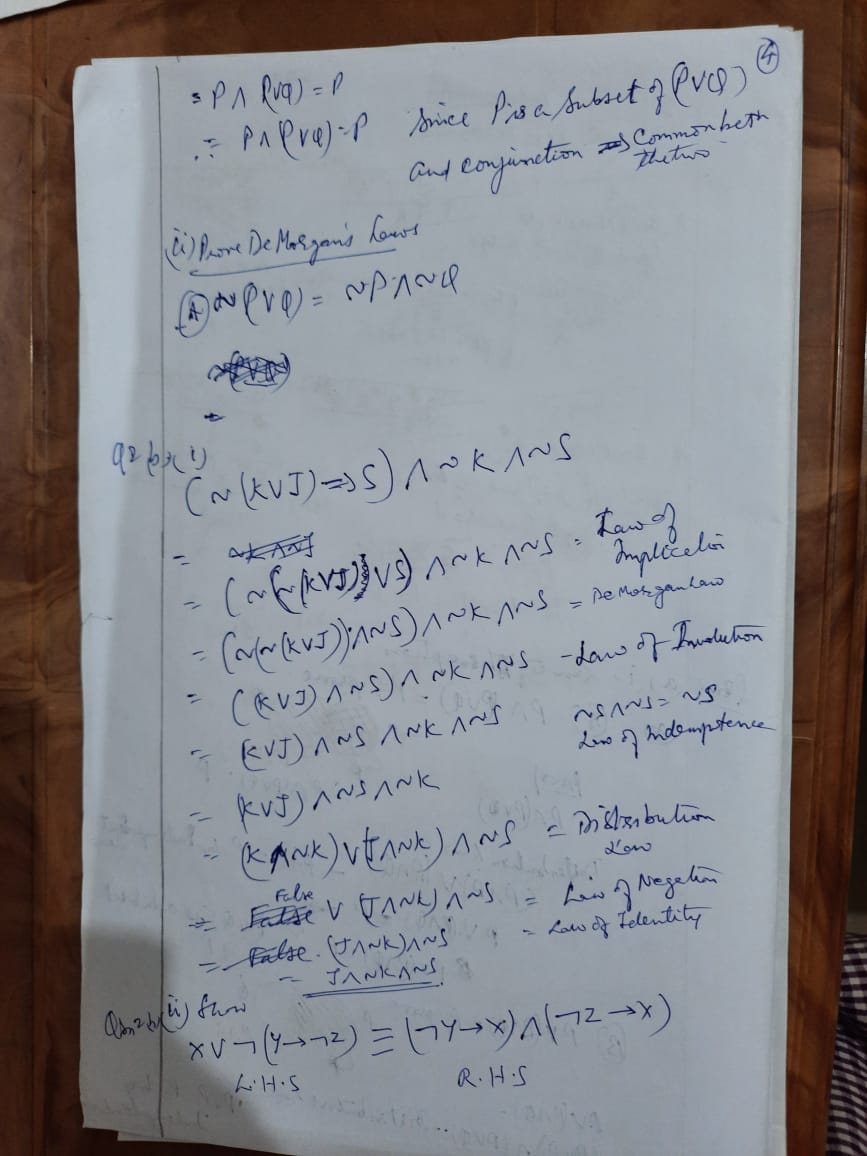 ④
= P ∧ (PVQ) = P
∴ = P ∧ (PVQ) = P Since P is a Subset of (PVQ)
and conjunction => Common beth
the two
(ii) Prove De Morgan's Laws
Ⓐ ~(PVQ) = ~P ∧ ~Q
(i)
(~(KVJ) => S) ∧ ~K ∧ ~S
=
= (~(~(KVJ)) VS) ∧ ~K ∧ ~S = Law of
Implicatio
= (~(~(KVJ)) ∧ ~S) ∧ ~K ∧ ~S = De Morgan Law
= ((KVJ) ∧ ~S) ∧ ~K ∧ ~S - Law of Involution
= (KVJ) ∧ ~S ∧ ~K ∧ ~S ~S ∧ ~S = ~S
Law of Indemptence
= (KVJ) ∧ ~S ∧ ~K
= (K ∧ ~K) V (J ∧ ~K) ∧ ~S = Distribution
Law
= False V (J ∧ ~K) ∧ ~S = Law of Negation
= (J ∧ ~K) ∧ ~S = Law of Identity
= J ∧ ~K ∧ ~S
Qsn 2b (ii) Show
X V ¬(Y → ¬Z) ≡ (¬Y → X) ∧ (¬Z → X)
L.H.S R.H.S